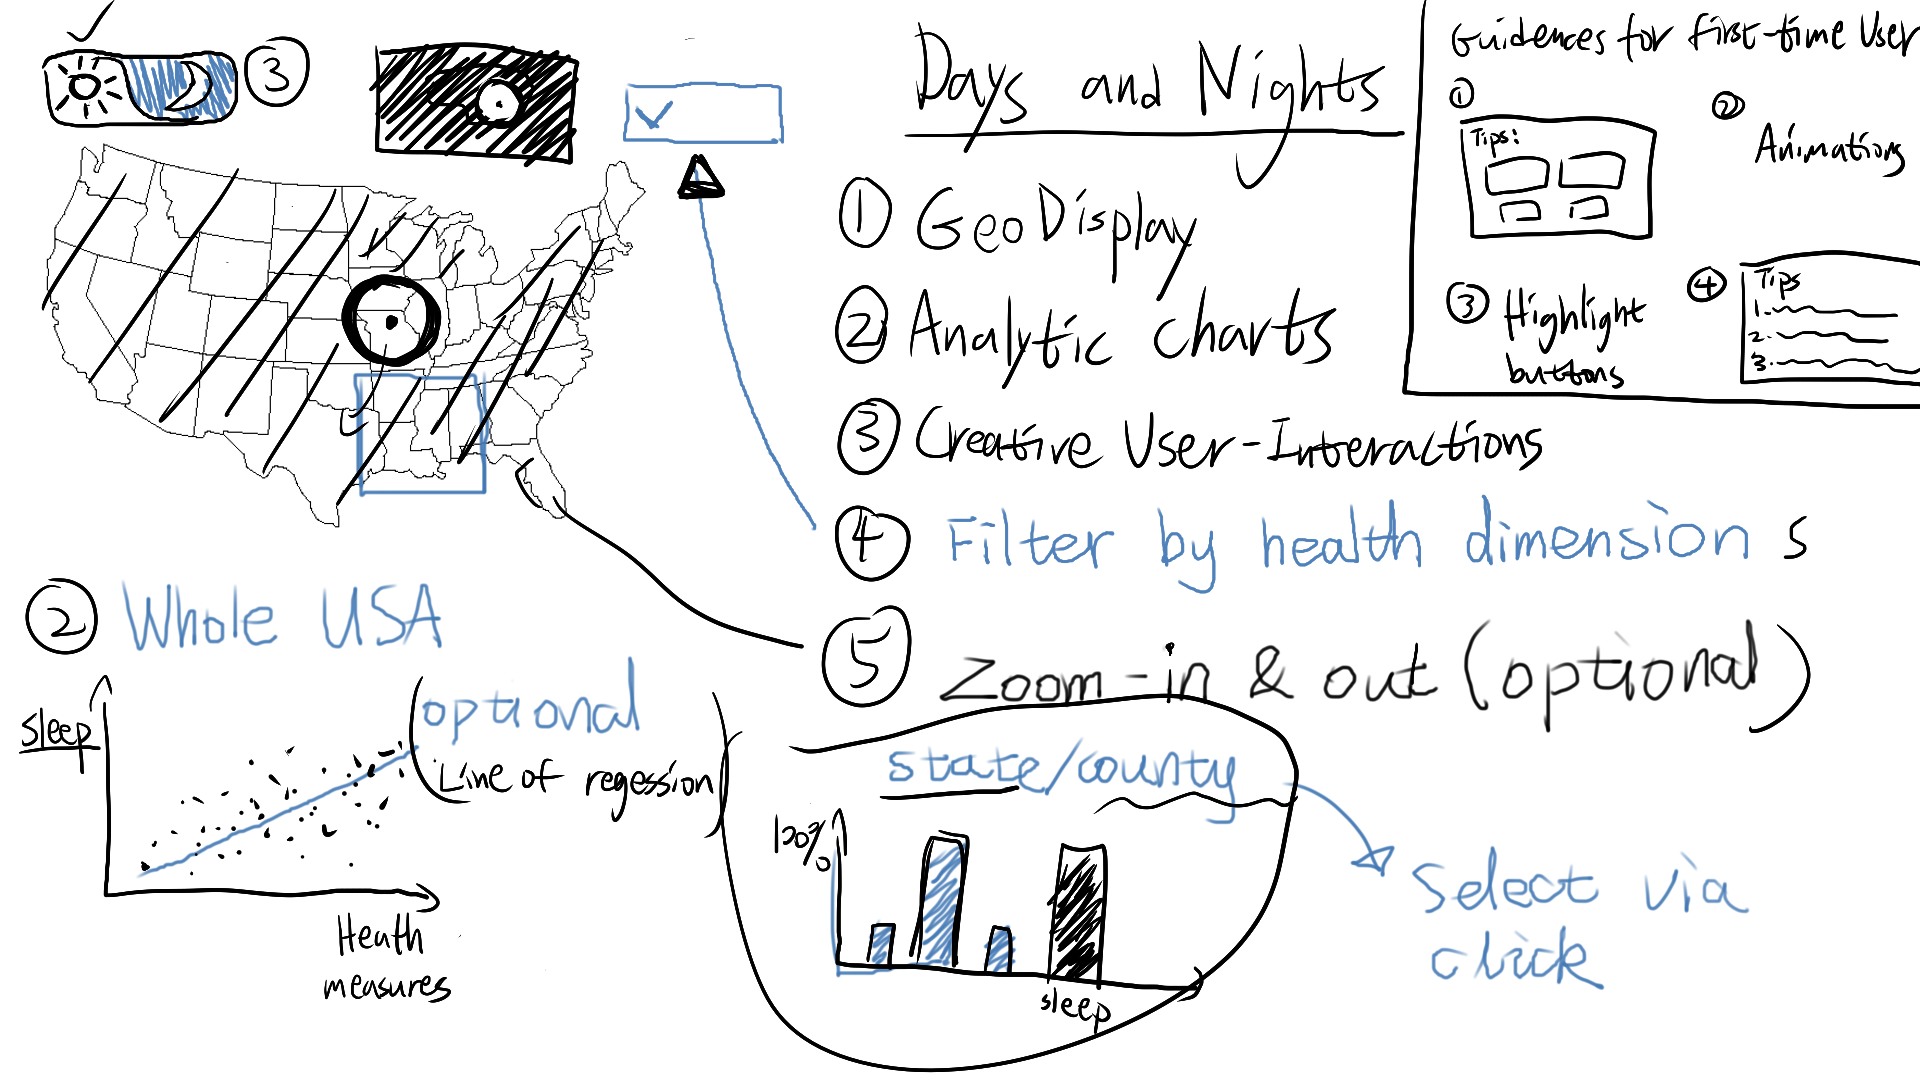 ③
Days and Nights
① GeoDisplay
② Analytic charts
③ Creative User-Interactions
④ Filter by health dimension s
⑤ Zoom-in & out (optional)
Guidences for first-time User
①
Tips:
②
Animations
③ Highlight
buttons
④
Tips
1.
2.
3.
② Whole USA
Sleep
(optional
Line of regession)
Heath
measures
state/county
sleep
Select via
click